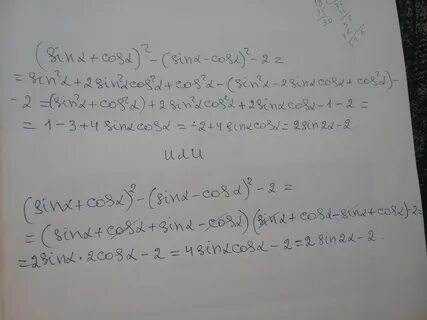 (sinα+cosα)²-(sinα-cosα)²-2=
=sin²α+2sin²αcos²α+cos²α-(sin²α-2sinαcosα+cos²α)-
-2=(sin²α+cos²α)+2sin²αcos²α+2sinαcosα-1-2=
=1-3+4sinαcosα=-2+4sinαcosα=2sin2α-2
или
(sinα+cosα)²-(sinα-cosα)²-2=
=(sinα+cosα+sinα-cosα)(sinα+cosα-sinα+cosα)-2=
=2sinα·2cosα-2=4sinαcosα-2=2sin2α-2.